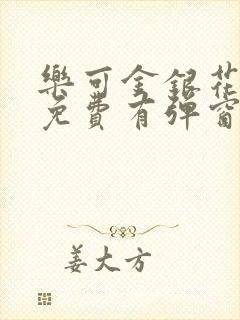 樂可金銀花
免費有彈窗
姜大方